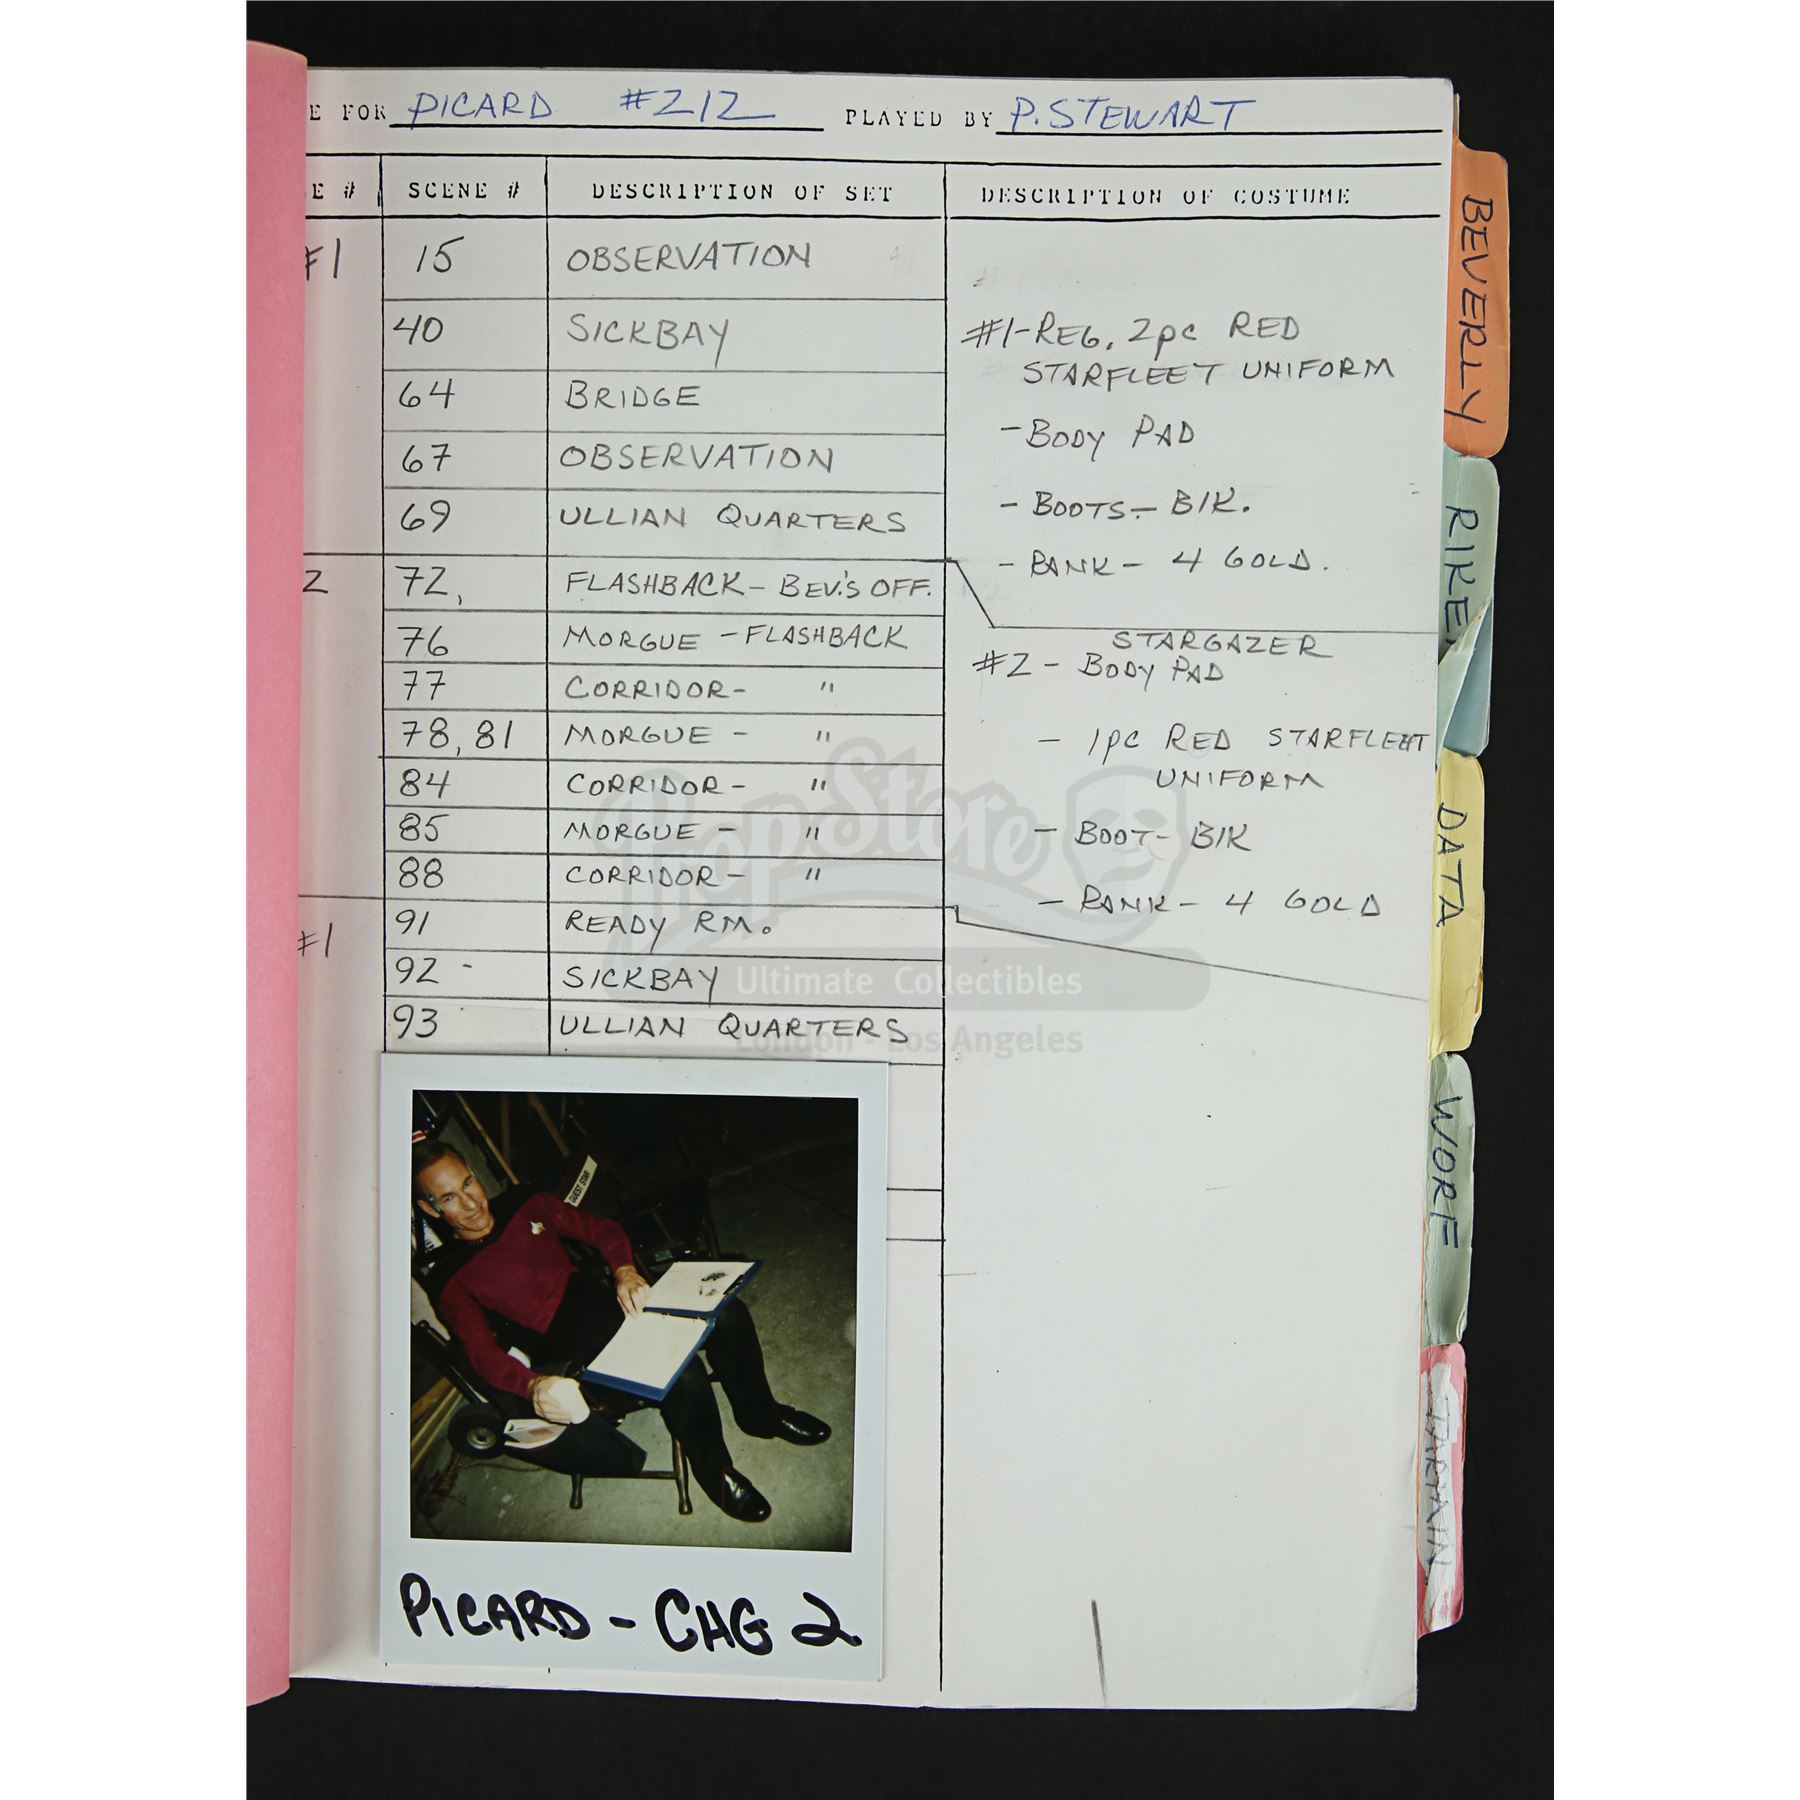 E FOR PICARD #212 PLAYED BY P. STEWART
E # SCENE # DESCRIPTION OF SET DESCRIPTION OF COSTUME
#1 15 OBSERVATION
40 SICKBAY
64 BRIDGE
67 OBSERVATION
69 ULLIAN QUARTERS
2 72, FLASHBACK - BEV.'S OFF.
76 MORGUE - FLASHBACK
77 CORRIDOR - "
78, 81 MORGUE - "
84 CORRIDOR - "
85 MORGUE - "
88 CORRIDOR - "
#1 91 READY RM.
92 - SICKBAY
93 ULLIAN QUARTERS
#1 - REG. 2pc RED
STARFLEET UNIFORM
- BODY PAD
- BOOTS - BlK.
- RANK - 4 GOLD.
STARGAZER
#2 - BODY PAD
- 1pc RED STARFLEET
UNIFORM
- BOOT - BlK
- RANK - 4 GOLD
BEVERLY
RIKE
DATA
WORF
PropStore
Ultimate Collectibles
London - Los Angeles
GUEST STAR
PICARD - CHG 2